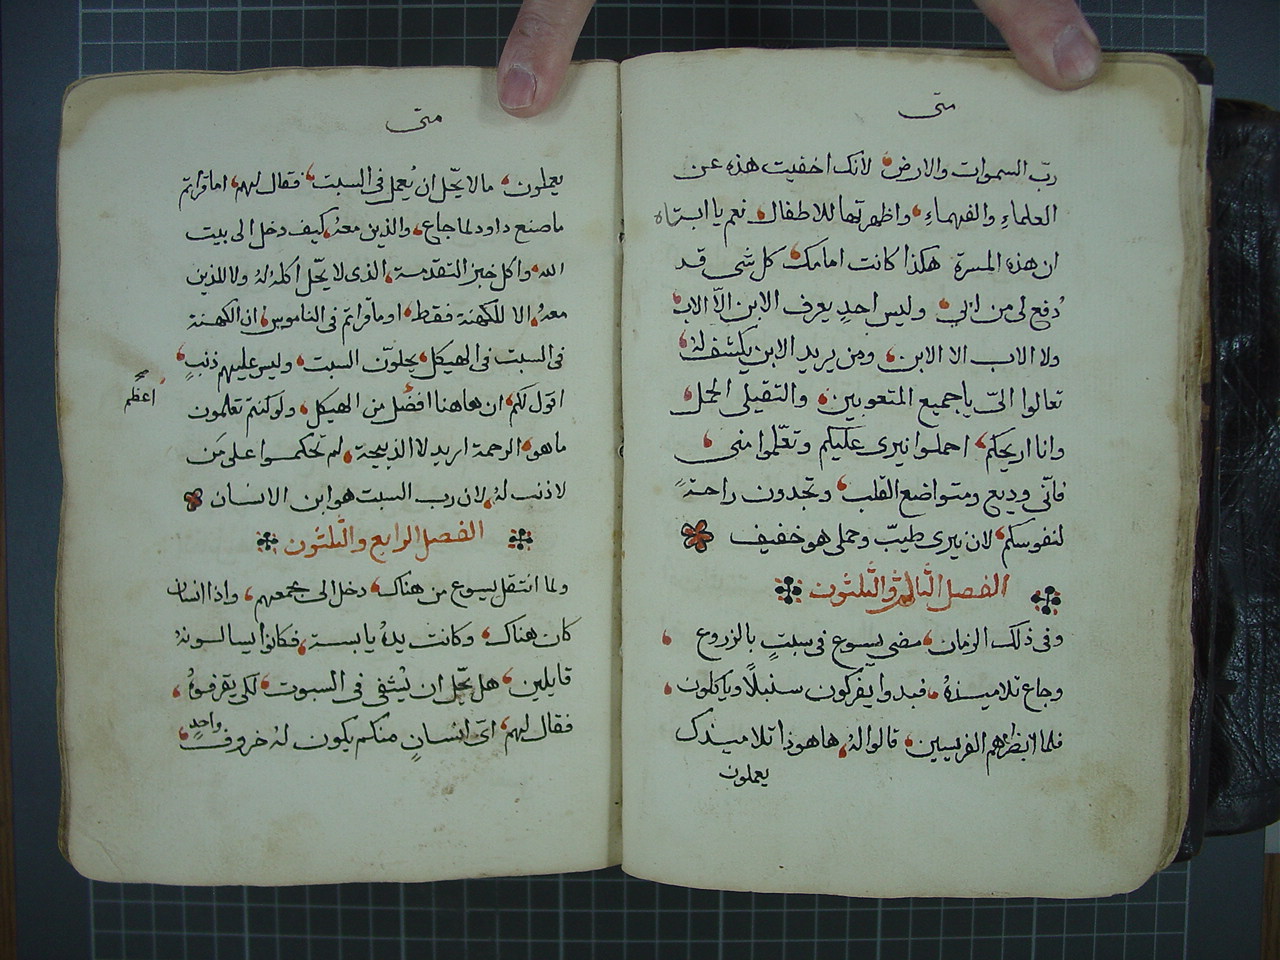 متى
رب السموات والارض لأنك اخفيت هذه عن
العلماء والفهماء واظهرتها للاطفال نعم يا ابتاه
ان هذه المسرة هكذا كانت امامك كل شى قد
دُفع لى من ابي وليس احدٍ يعرف الابن الّا الاب
ولا الاب الا الابن ومن يريد الابن يكشف لهُ
تعالوا الىّ ياجميع المتعوبين والتقيلى الحمل
وانا اريحكم احملوا نيرى عليكم وتعّلموا منى
فأنى وديع ومتواضع القلب وتجدون راحةً
لنفوسكم لان نيرى طيّب وحملى هو خفيف
الفصل الثالث والثلثون
وفى ذلك الزمان مضى يسوع فى سبتٍ بالزروع
وجاع تلاميذهُ فبدوا يفركون سنبلًا وياكلون
فلما ابظراهم الفريسين قالوا لهُ هاهوذا تلاميذك
يعملون
متى
يعملون ما لا يحّل ان يُعمل فى السبت فقال لهم اما قراتم
ما صنع داود لما جاع والذين معهُ كيف دخل الى بيت
الله واكل خبز التقدمة الذى لا يحّل اكلهُ لهُ ولا للذين
معهُ الا للكهنة فقط اوما قراتم فى الناموس ان الكهنة
فى السبت فى الهيكل يحلوّن السبت وليس عليهم ذنبٍ
اقول لكم ان هاهنا افضل من الهيكل ولو كنتم تعلمون
اعظم
ما هو الرحمة اريد لا الذبيحة لم تحكموا على مَن
لا ذنب لهُ لان رب السبت هو ابن الانسان
الفصل الرابع والثلثون
ولما انتقل يسوع من هناك دخل الى مجمعهم واذا انسان
كان هناك وكانت يدهُ يابسة فكانوا يسالونهُ
قايلين هل يحّل ان يُشفى فى السبوت لكى يقرفوهُ
فقال لهم اىّ انسانٍ منكم يكون لهُ خروف واحدٍ